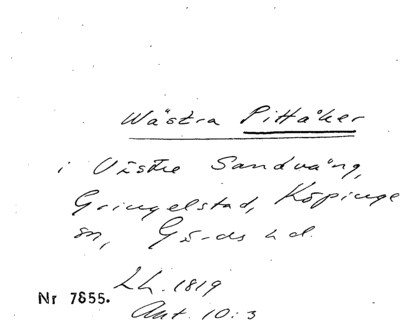 Wästra Pittåker
i Västra Sandvång,
Gringelstad, Köpinge
sn, Gärds hd.
LL. 1819
Nr 7855.
Akt. 10:3